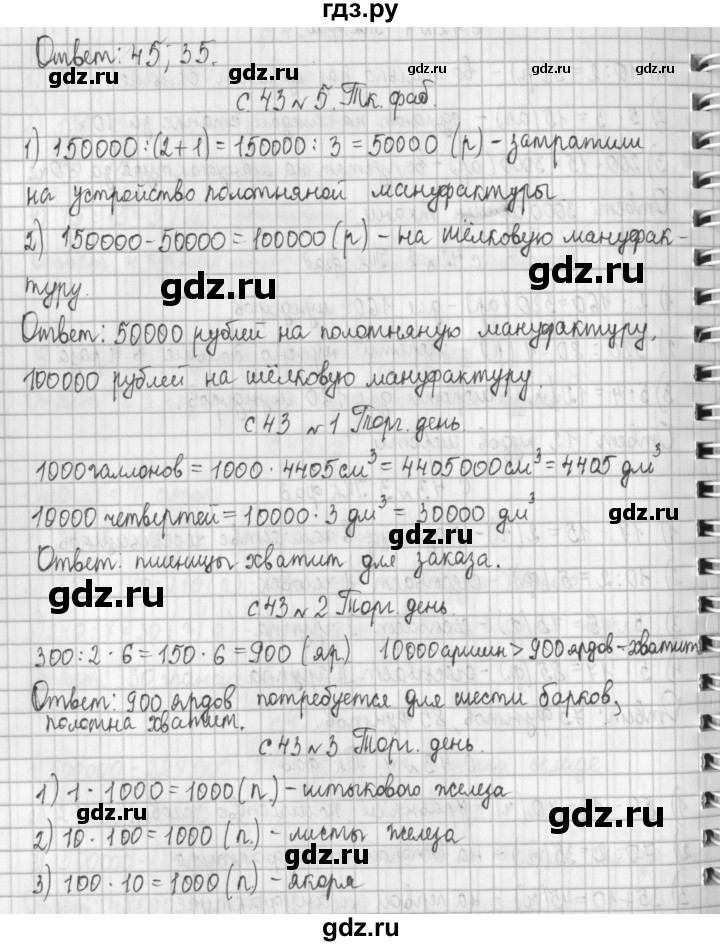 гдз.ру
Ответ: 45, 35.
gdz.ru gdz.ru gdz.ru
с. 43 № 5. Тк. фаб.
1) 150000 : (2+1) = 150000 : 3 = 50000 (р) - затратили
gdz.ru gdz.ru
на устройство полотняной мануфактуры.
2) 150000 - 50000 = 100000 (р) - на шёлковую мануфак-
туру. gdz.ru gdz.ru
Ответ: 50000 рублей на полотняную мануфактуру,
gdz.ru gdz.ru
100000 рублей на шёлковую мануфактуру.
с. 43 № 1 Торг. день.
gdz.ru
1000 галлонов = 1000 · 4405 см³ = 4405000 см³ = 4405 дм³
10000 четвертей = 10000 · 3 дм³ = 30000 дм³
gdz.ru gdz.ru
Ответ: пшеницы хватит для заказа.
gdz.ru
с. 43 № 2 Торг. день.
gdz.ru
300 : 2 · 6 = 150 · 6 = 900 (яр) 10000 аршин > 900 ярдов - хватит
Ответ: 900 ярдов потребуется для шести барков,
gdz.ru gdz.ru
полотна хватит.
с. 43 № 3 Торг. день.
1) 1 · 1000 = 1000 (п.) - штыкового железа
gdz.ru gdz.ru
2) 10 · 100 = 1000 (п.) - листы железа
gdz.ru
3) 100 · 10 = 1000 (п.) - якоря
gdz.ru